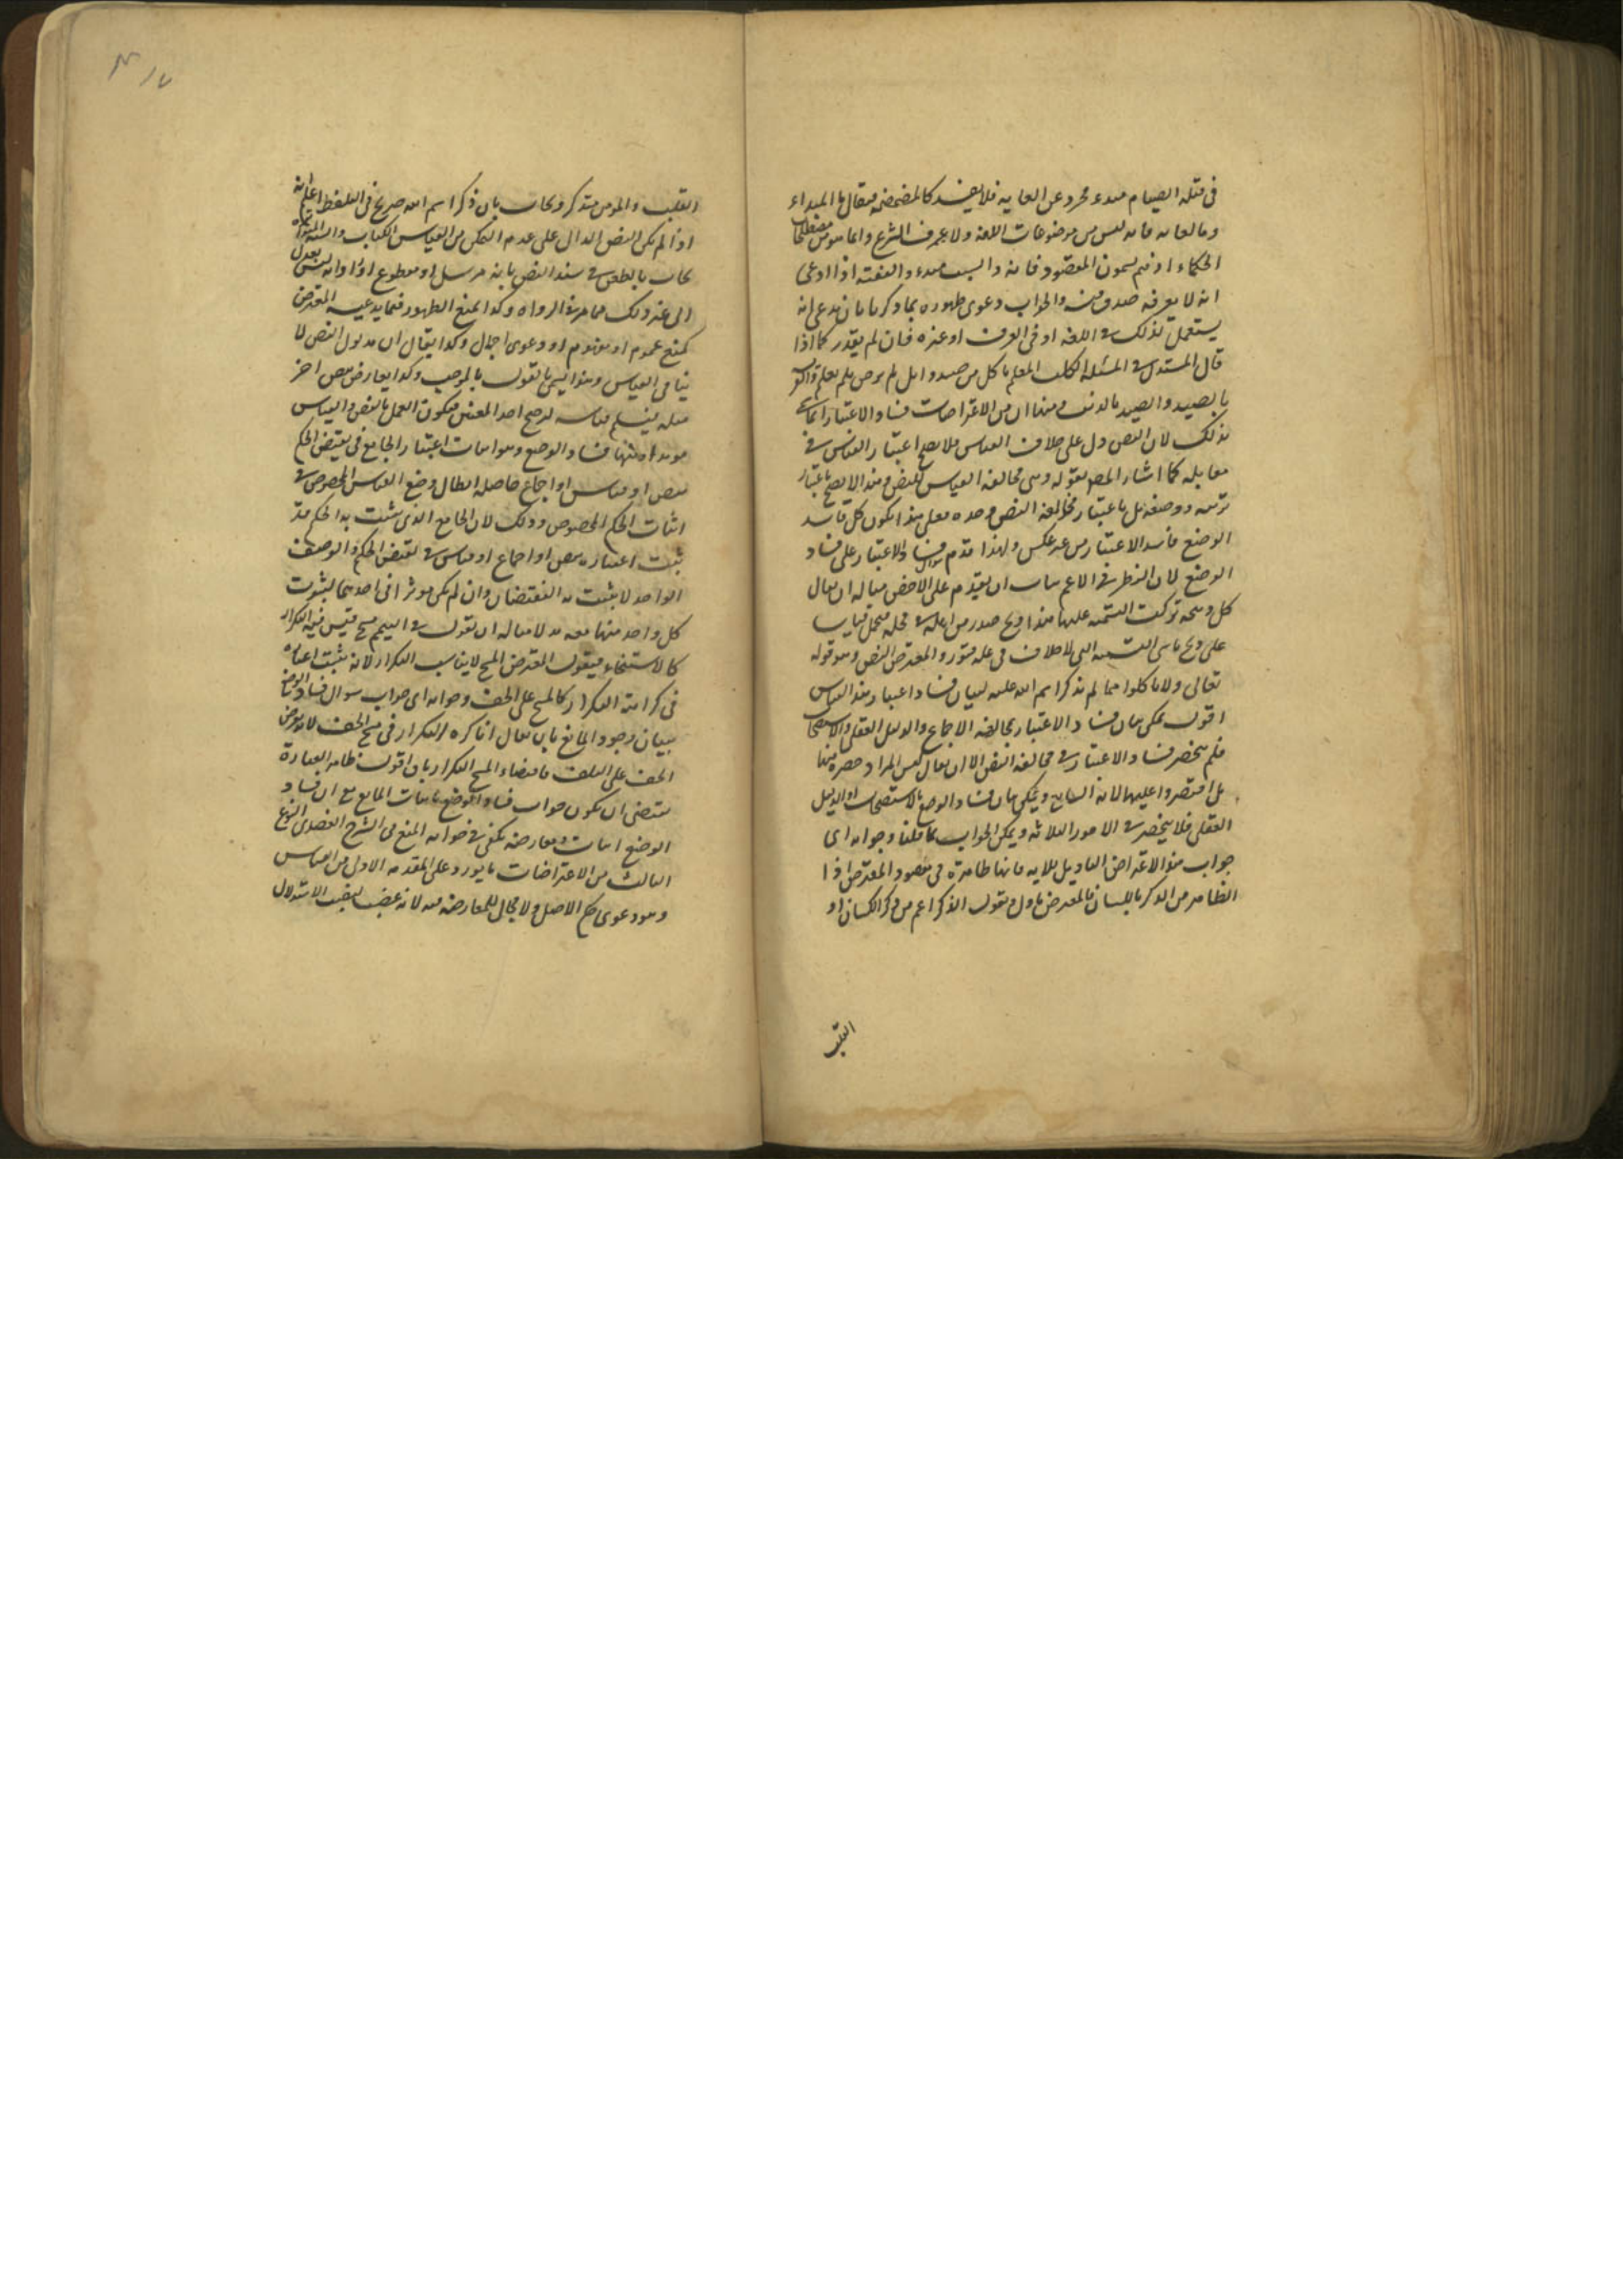 في قبلة الصيام مبدء مجرد عن الغاية فلا يفسد كالمضمضة فيقال ما المبداء
وما الغاية فانه ليس من موضوعات اللغة ولا عرف الشرع وانما هو من مصطلحات
الحكماء اذ هم يسمون المقصود غاية والسبب مبدء والفقيه اذا ادعى
انه لا يعرفه صدق فيه والجواب دعوى ظهوره بما ذكرنا بان يدعى انه
يستعمل لذلك في اللغة او في العرف او غيره فان لم يقدر كما اذا
قال المستدل في المسئلة الكلب المعلم ياكل من صيده ايل لم يرض فلم يعلم
بالصيد والصيد بالذئب ومنها اى من الاعتراضات فساد الاعتبار انما سمى
بذلك لان النص دل على خلاف القياس فلا يصح اعتبار القياس في
مقابله كما اشار المص بقوله وهي مخالفة القياس للنص وهذا لا يصح باعتبار
ترتيبه ووضعه بل باعتبار مخالفة النص وحده فعلى هذا يكون كل فاسد
الوضع فاسد الاعتبار من غير عكس ولهذا قدم سؤال فساد الاعتبار على فساد
الوضع لان النظر في الاعم يناسب ان يقدم على الاخص مثاله ان يقال
كل ذبيحة تركت التسمية عليها هذا ذبح صدر من اهله في محله فيحل قياسا
على ذبح ناسي التسمية التي لا خلاف في حله فيورد المعترض النص وهو قوله
تعالى ولا تاكلوا مما لم يذكر اسم الله عليه لبيان فساد اعتبار هذا القياس
اقول يمكن بيان فساد الاعتبار بمخالفة الاجماع والدليل العقلي والاستصحاب
فلم ينحصر فساد الاعتبار في مخالفة النص الا ان يقال ليس المراد حصره فيها
بل اقتصروا عليها لانه الشايع ويمكن بيان فساد الوضع بالاستصحاب او الدليل
العقلي فلا ينحصر في الامور الثلاثة ويمكن الجواب بما قلنا وجوابه اى
جواب هذا الاعتراض التاويل للاية فانها ظاهرة في مقصود المعترض اذا
الظاهر من الذكر باللسان فالمعترض يأول ويقول الذكر اعم من ذكر اللسان او
القلب
القلب والمؤمن متذكر ويجاب بان ذكر اسم الله صريح في التلفظ
اذا لم يكن النص الدال على عدم التمكن من القياس الكتاب والسنة المتواترة
يجاب بالطعن في سند النص بانه مرسل او مقطوع او راويه ليس بعدل
الى غير ذلك مما مر في الرواة وكذا بمنع الظهور فيما يدعيه المعترض
كمنع عموم او مفهوم او دعوى اجمال وكذا يقال ان مدلول النص لا
ينافي القياس وهذا يسمى بالقول بالموجب وكذا يعارض بنص اخر
مثله فيسلم قياسه لترجح احد النصين فيكون العمل بالنص والقياس
مؤيدا ومنها فساد الوضع وهو اثبات اعتبار الجامع في نقيض الحكم
بنص او قياس او اجماع حاصله ابطال وضع القياس المخصوص في
اثبات الحكم المخصوص وذلك لان الجامع الذي يثبت به الحكم قد
ثبت اعتباره بنص او اجماع او قياس في نقيض الحكم والوصف
الواحد لا يثبت به النقيضان وان لم يكن مؤثرا في احدهما لثبوت
كل واحد منهما معه بدلا مثاله ان يقول في التيمم مسح فيسن فيه التكرار
كالاستنجاء فيقول المعترض المسح لا يناسب التكرار لانه يثبت اعتباره
في كراهة التكرار كالمسح على الخف وجوابه اى جواب سؤال فساد الوضع
ببيان وجود المانع بان يقال انما كره التكرار في مسح الخف لانه يعرض
الخف على التلف فاقتضاء المسح التكرار باق اقول ظاهر العبارة
يقتضى ان يكون جواب فساد الوضع باثبات المانع مع ان فساد
الوضع اثبات ومعارضة يكفي في جوابه المنع في الشرح العضدي النوع
الثالث من الاعتراضات ما يورد على المقدمة الاولى من القياس
وهو دعوى حكم الاصل ولا مجال للمعارضة فيه لانه غصب لمنصب الاستدلال